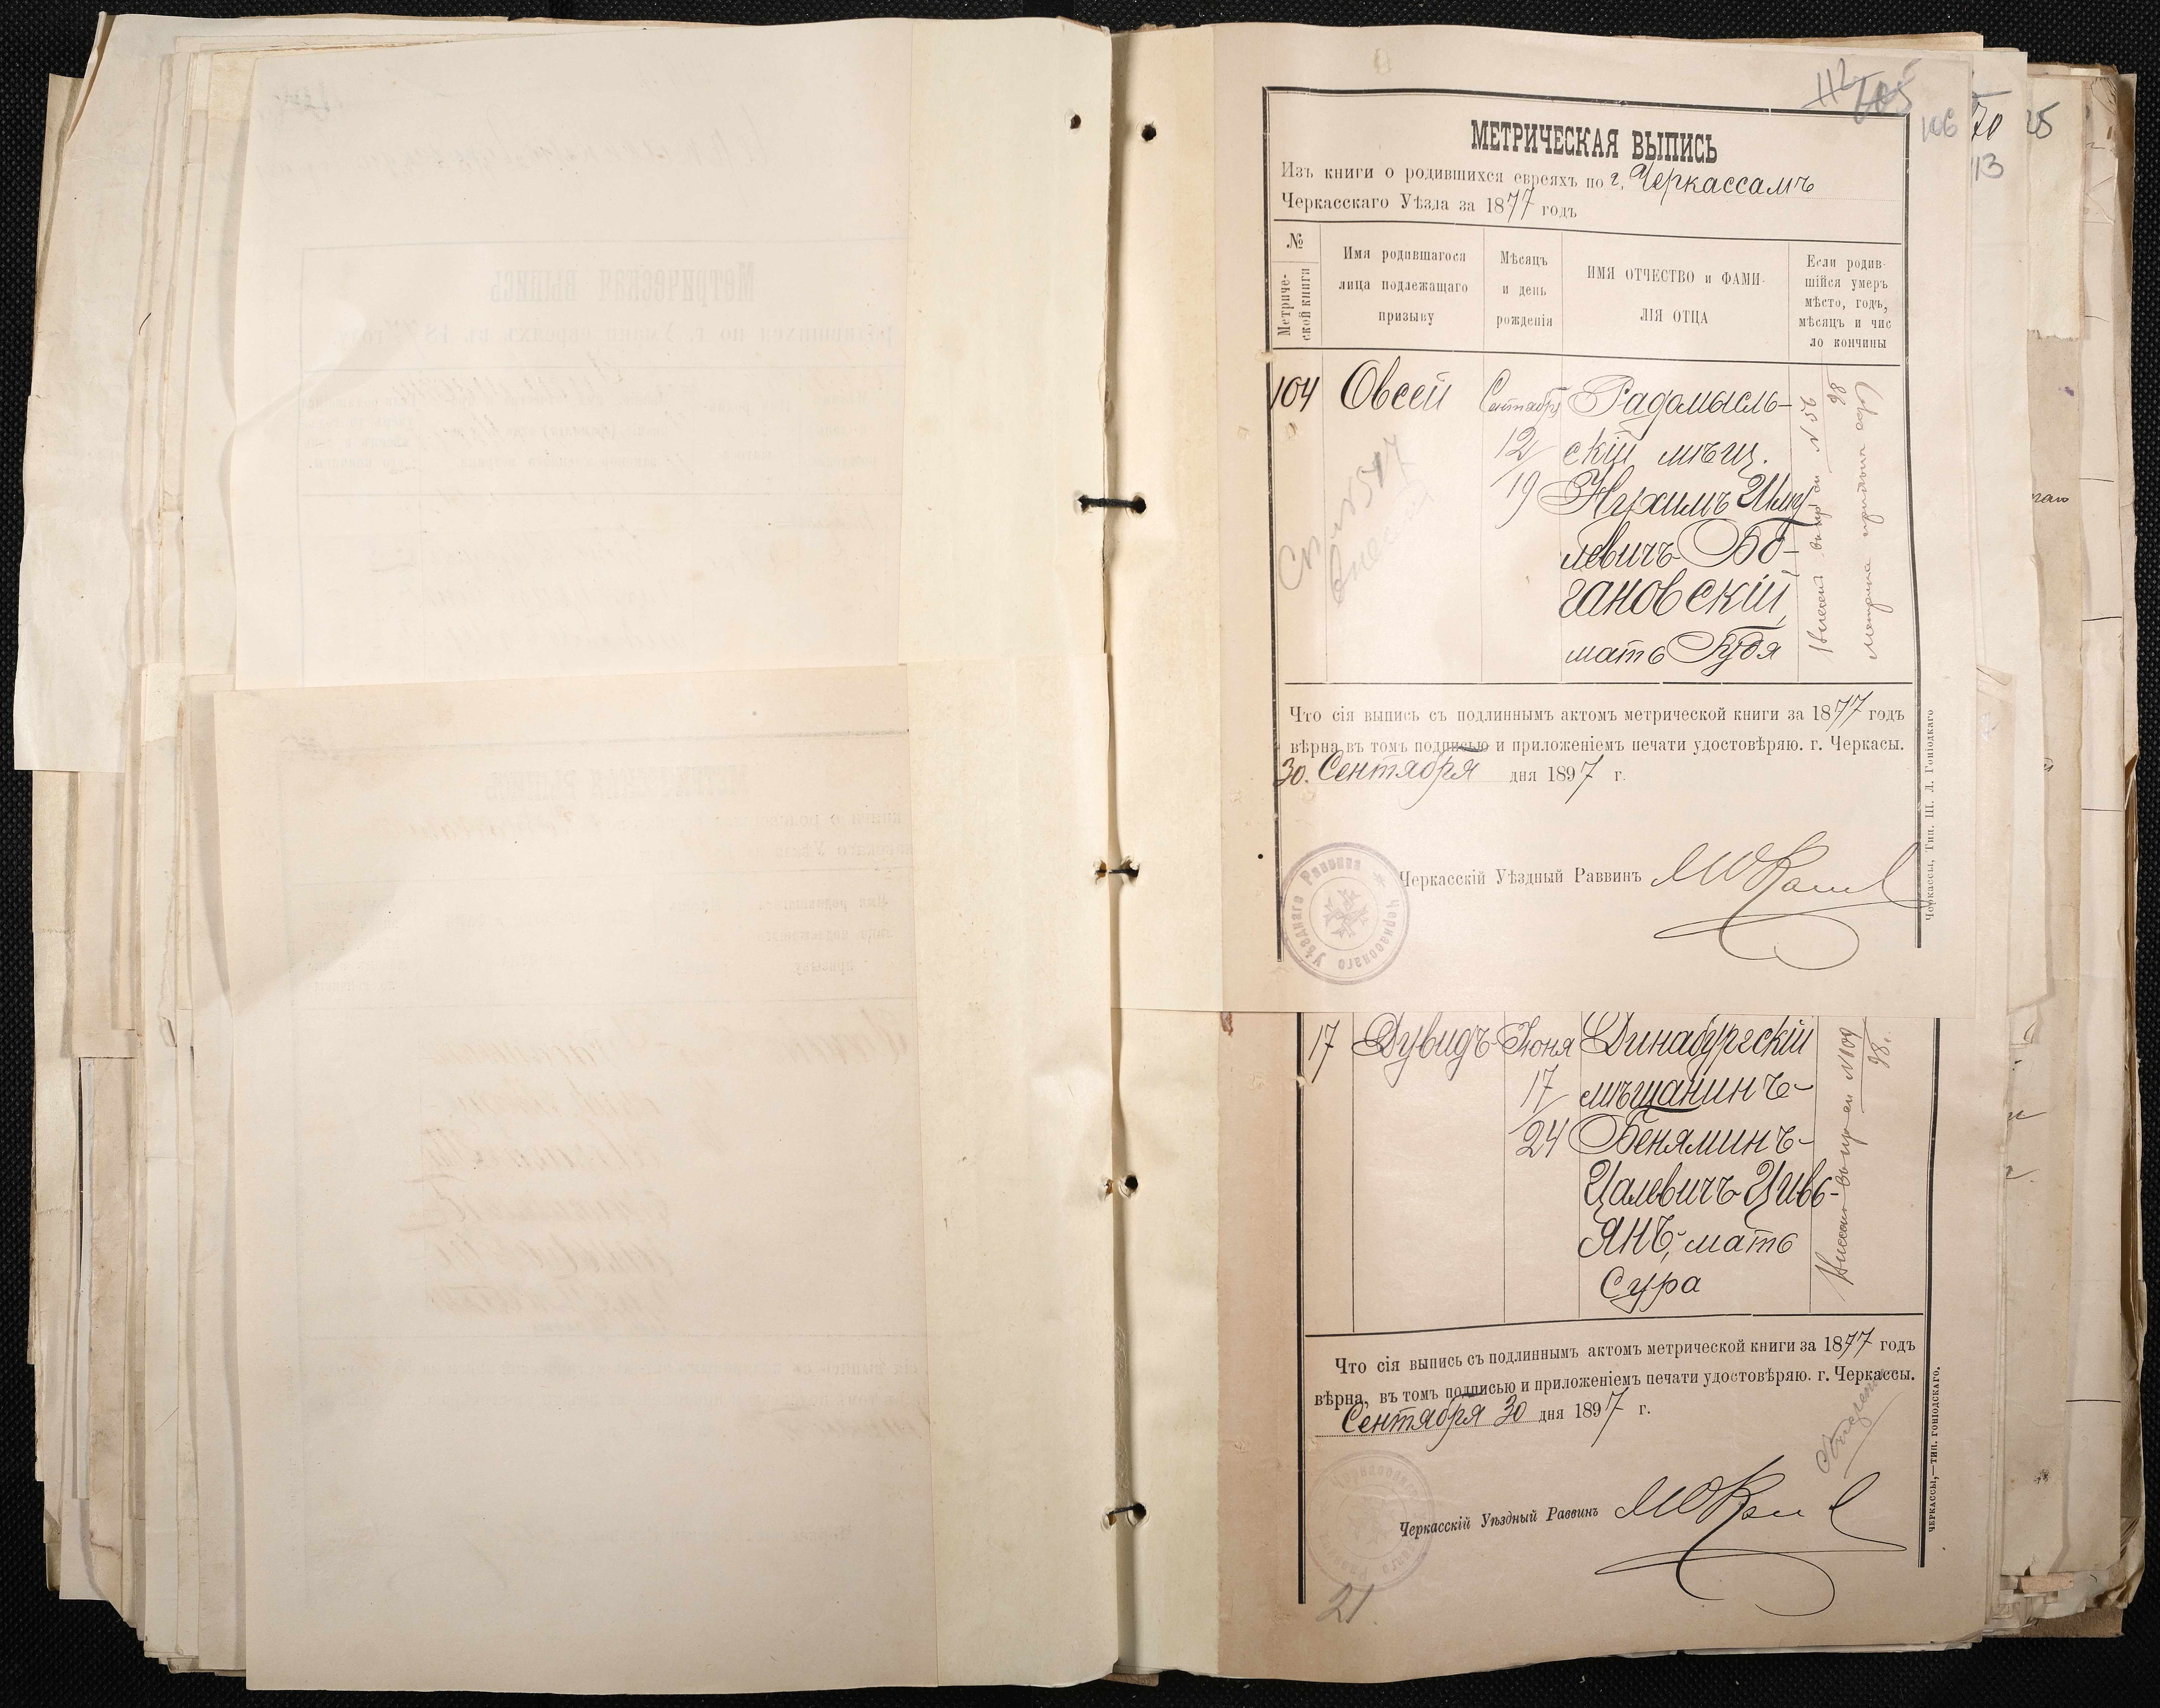 112
105
106
70
25
13
МЕТРИЧЕСКАЯ ВЫПИСЬ
Изъ книги о родившихся евреяхъ по г. Черкассамъ
Черкасскаго Уѣзда за 1877 годъ
№
Метриче-
ской книги
Имя родившагося
лица подлежащаго
призыву
Мѣсяцъ
и день
рожденія
ИМЯ ОТЧЕСТВО и ФАМИ-
ЛІЯ ОТЦА
Если родив-
шійся умеръ
мѣсто, годъ,
мѣсяцъ и чис
ло кончины
104 Овсей Сентября Радомысль-
12 скій мѣщ.
19 Нухимъ Шму-
левичъ Бо-
гановскій,
мать Рудя
№ 56
98
Сп. № 517
Что сія выпись съ подлиннымъ актомъ метрической книги за 1877 годъ
вѣрна въ томъ подписью и приложеніемъ печати удостовѣряю. г. Черкасы.
30. Сентября дня 1897 г.
Черкасскій Уѣздный Раввинъ
Черкасскаго Уѣзднаго Раввина
Черкассы, Тип. Ш. Л. Гоніодскаго
17 Дувидъ Іюня Динабургскій
17 мѣщанинъ
24 Беняминъ
Цалевичъ Цивь-
янъ, мать
Сура
№ 109
98 г.
Что сія выпись съ подлиннымъ актомъ метрической книги за 1877 годъ
вѣрна, въ томъ подписью и приложеніемъ печати удостовѣряю. г. Черкассы.
Сентября 30 дня 1897 г.
Черкасскій Уѣздный Раввинъ
21
ЧЕРКАССЫ,—ТИП. ГОНІОДСКАГО.